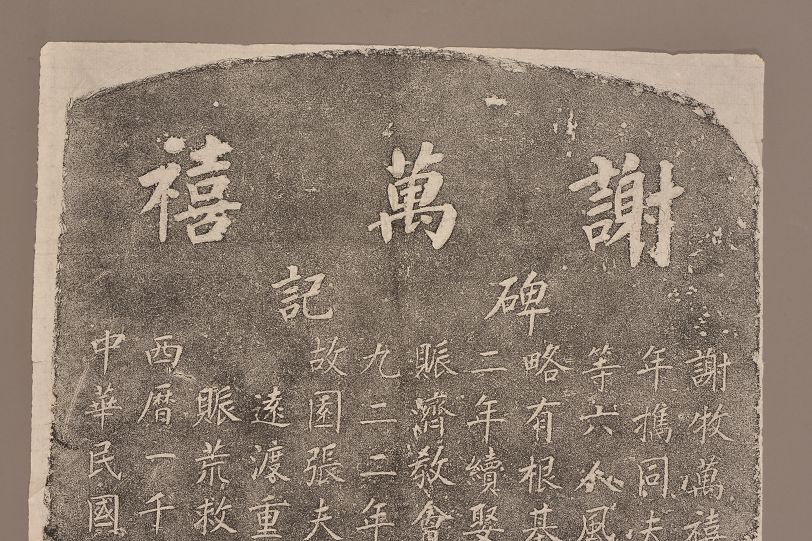 謝萬禧
碑記
謝牧萬禧
年擕同夫
等六風
略有根基
二年續娶
賑濟教會
九二二年
故園張夫
遠渡重
賑荒救
西曆一千
中華民國